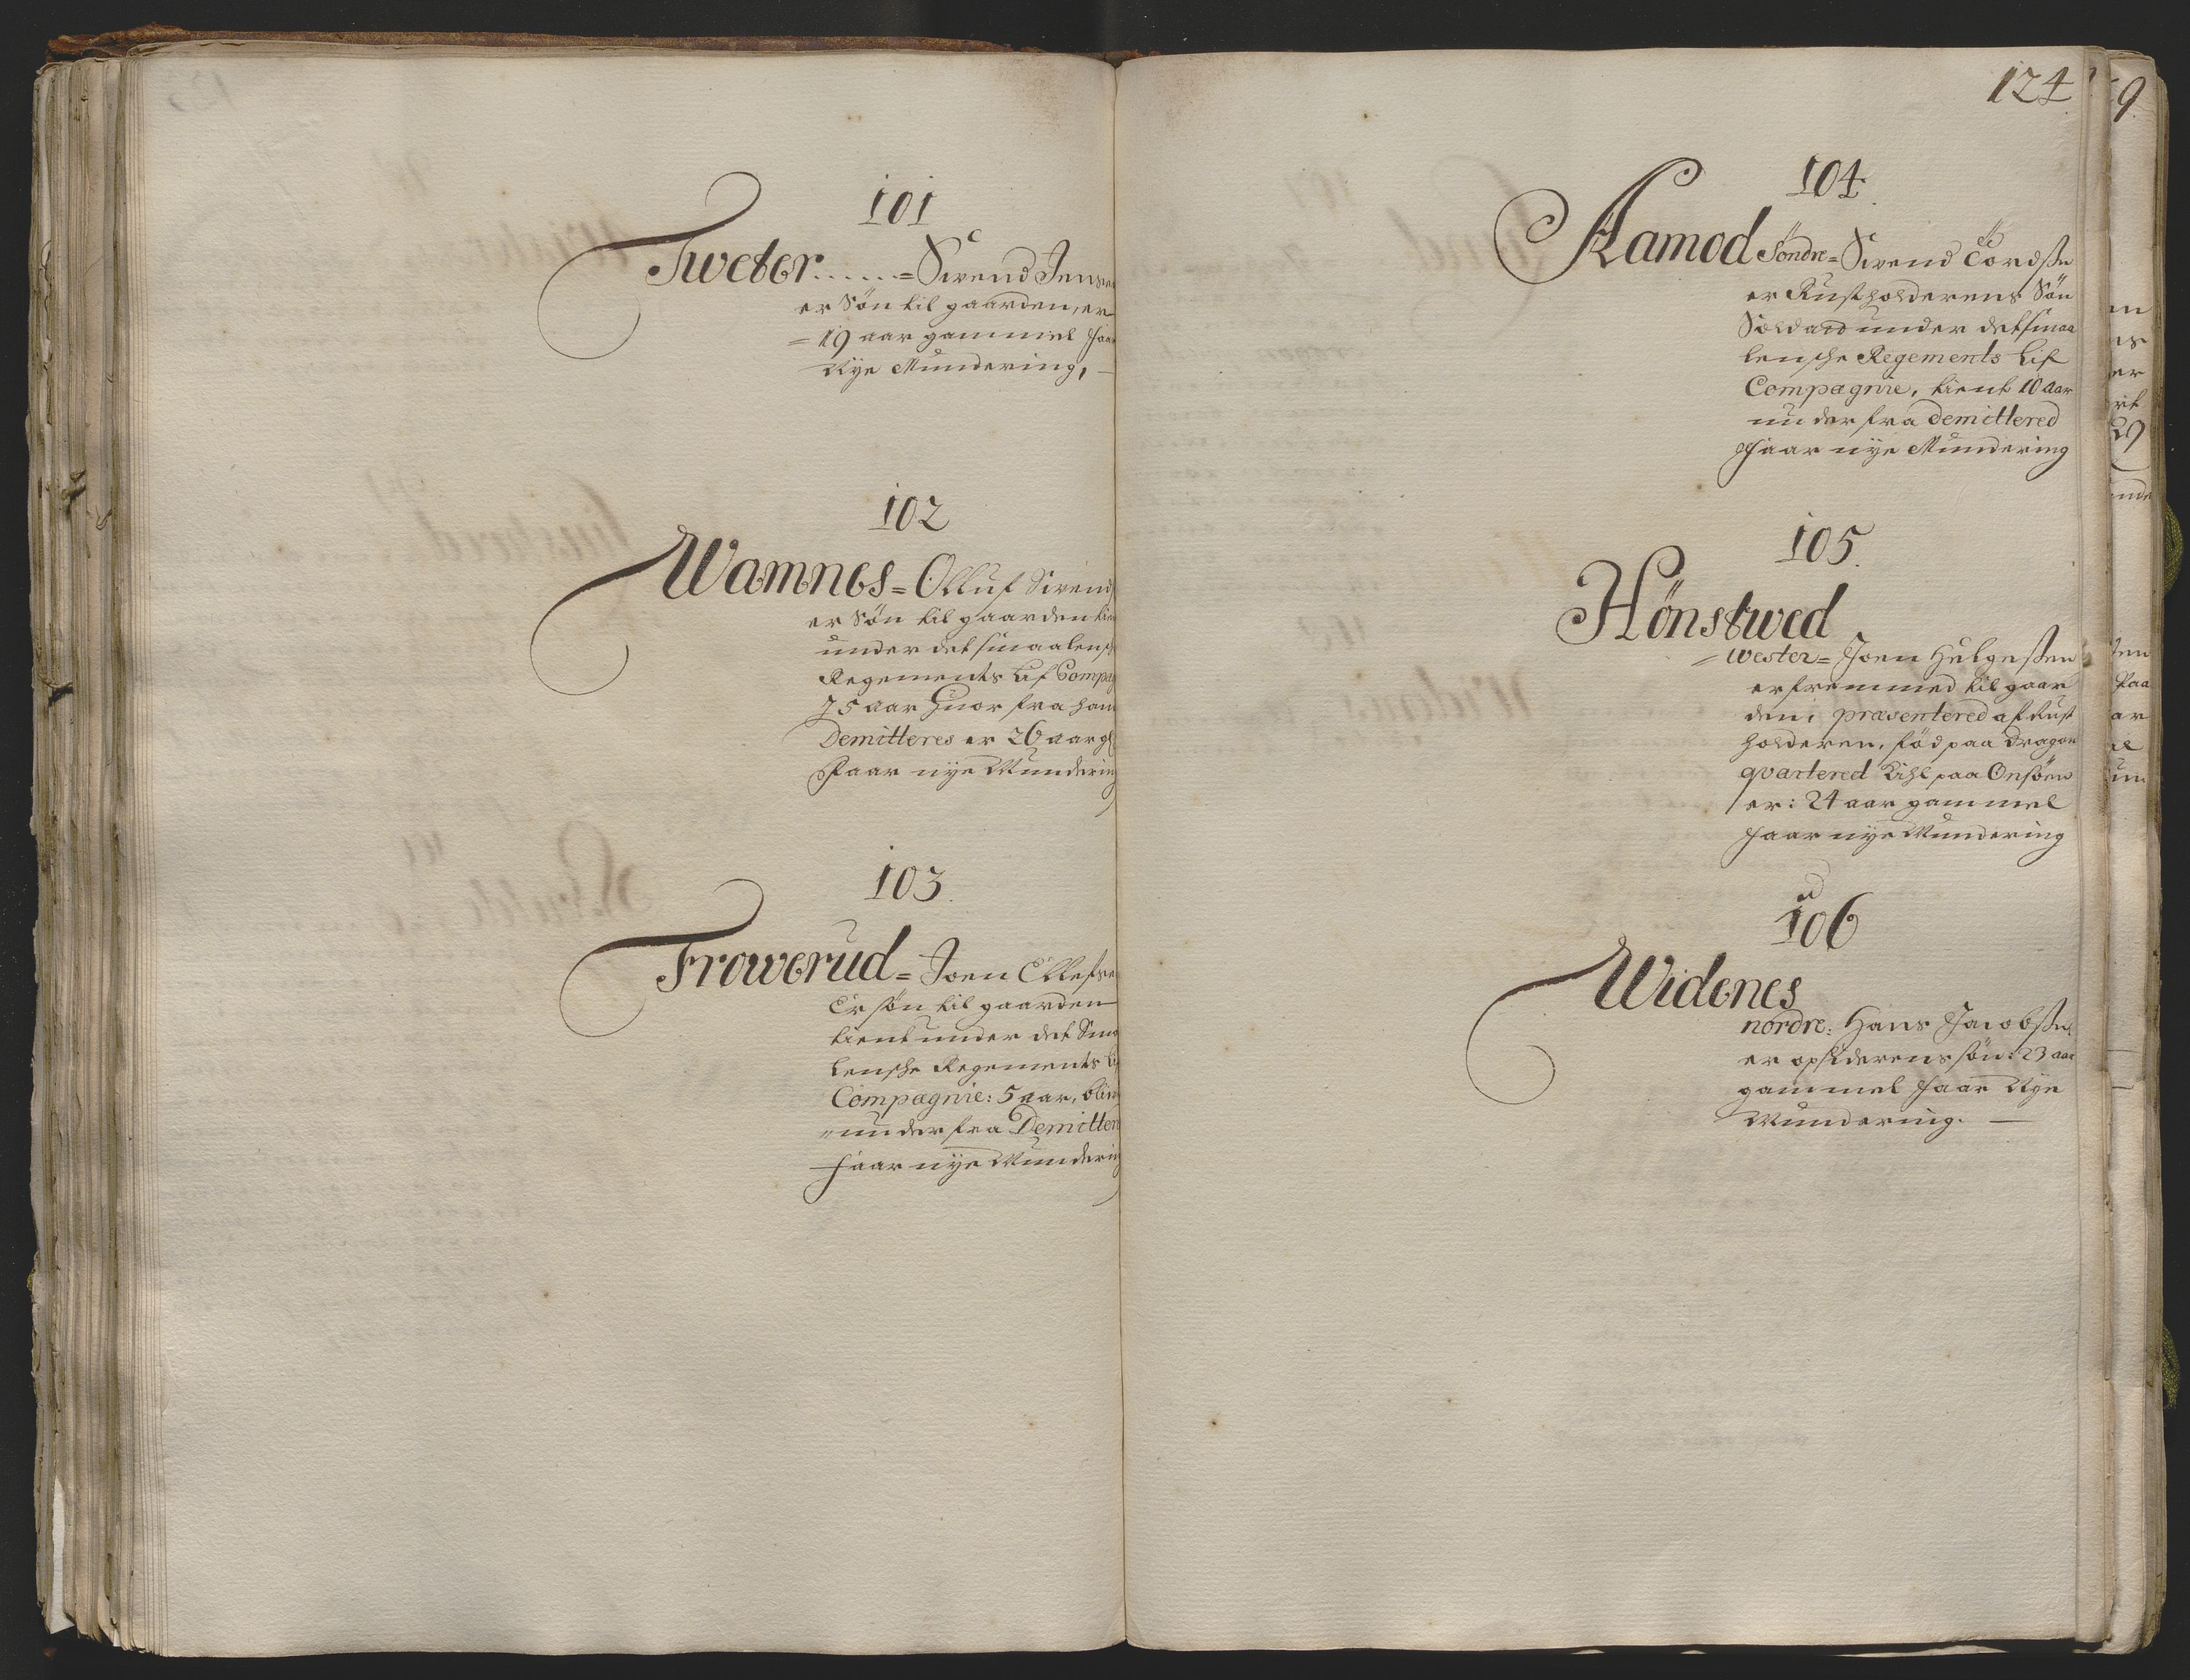 101
Tweter......= Swend Jens
er Søn til gaarden, er
= 19 aar gammel faar
Nye Mundering,
102
Wamnes = Olluf Swend
er Søn til gaarden tien
under det smaalensk
Regements Lif Compag
75 aar huor fra ham
Demitteres er 26 aar gl
Faar nye Mundering
103.
Frowerud = Joen Ellefse
Er søn til gaarden
tient under det Sma
lenske Regements Lif
Compagnie: 5 aar, bliv
nu der fra Demitter
faar nye Mundering
124
104.
Aamod Söndre = Swend Tordßn
er Rustholderens Søn
Soldat under det smaa
lenske Regements Lif
Compagnie, tient 10 aar
nu der fra demittered
Faar nye Mundering
105.
Hönstwed
= wester = Joen Helgeßen
er fremmed til gaar
den, præsentered af Rust
holderen, fød paa Dragon
qvartered Kihl paa Onsöen
er: 24 aar gammel
faar nye Mundering
106
Widenes
nordre: Hans Jacobßen
er opsiderens søn: 23 aar
gammel faar Nye
Mundering.